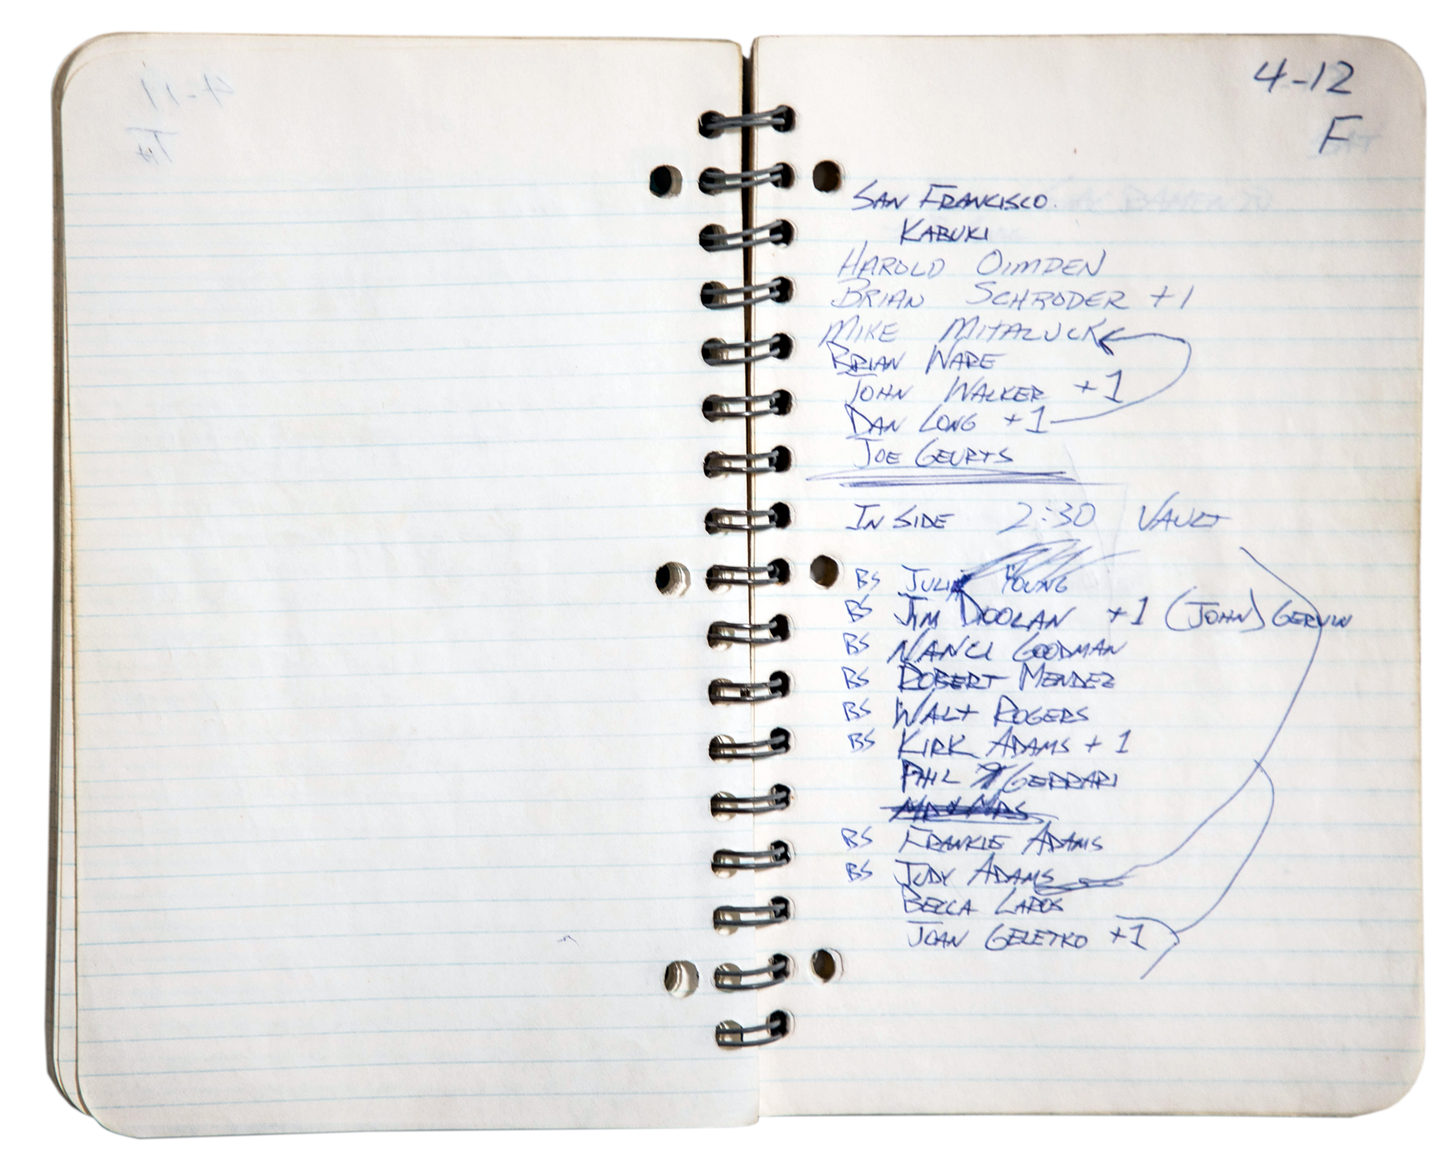 4-12
F
SAN FRANCISCO.
KABUKI
HAROLD OIMDEN
BRIAN SCHRODER +1
MIKE MITALUCK
BRIAN WARE
JOHN WALKER +1
DAN LONG +1
JOE GEURTS
INSIDE 2:30 VAULT
BS JULIA YOUNG
BS JIM DOOLAN +1 (JOHN) GERVIN
BS NANCI GOODMAN
BS ROBERT MENDEZ
BS WALT ROGERS
BS KIRK ADAMS +1
PHIL GERRARI
MR & MRS
BS FRANKIE ADAMS
BS JUDY ADAMS
BECCA LAROS
JOAN GELETKO +1